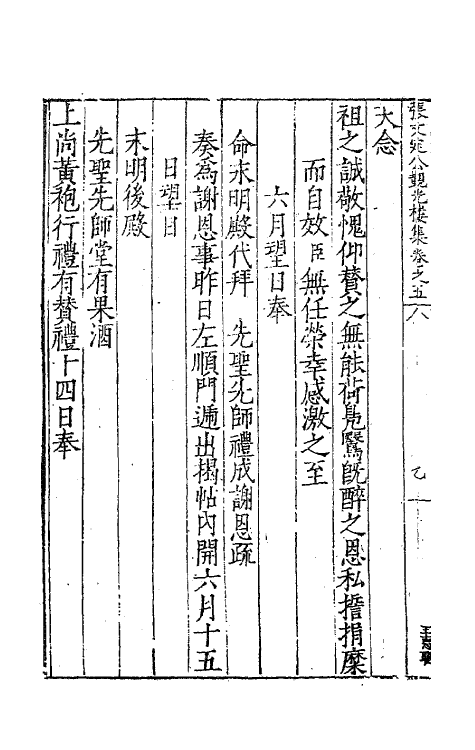 張文定公觀光樓集卷之五 六
乙
大念
祖之誠敬愧仰贊之無能荷鳧鷖旣醉之恩私誓捐糜
而自效臣無任榮幸感激之至
六月望日奉
命文明殿代拜 先聖先師禮成謝恩疏
奏爲謝恩事昨日左順門遞出揭帖內開六月十五
日望日
文明後殿
先聖先師堂有果酒
上尚黃袍行禮有贊禮十四日奉